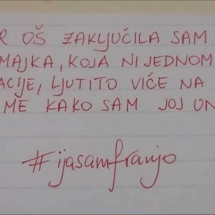 R OŠ ZAKLJUČILA SAM
MAJKA, KOJA NI JEDNOM
ACIJE, LJUTITO VIČE NA
ME KAKO SAM JOJ UN
#ijasamfranjo